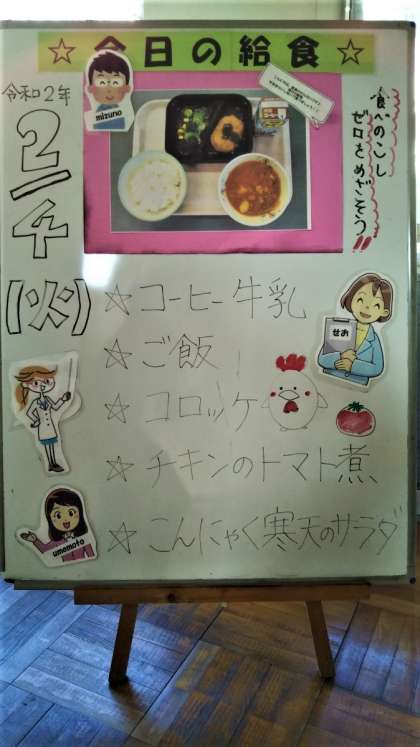 ☆今日の給食☆
mizuno
令和2年
2/4
(火)
食べのこし
ゼロをめざそう!!
☆コーヒー牛乳
☆ご飯
せお
☆コロッケ
☆チキンのトマト煮
☆こんにゃく寒天のサラダ
umemoto